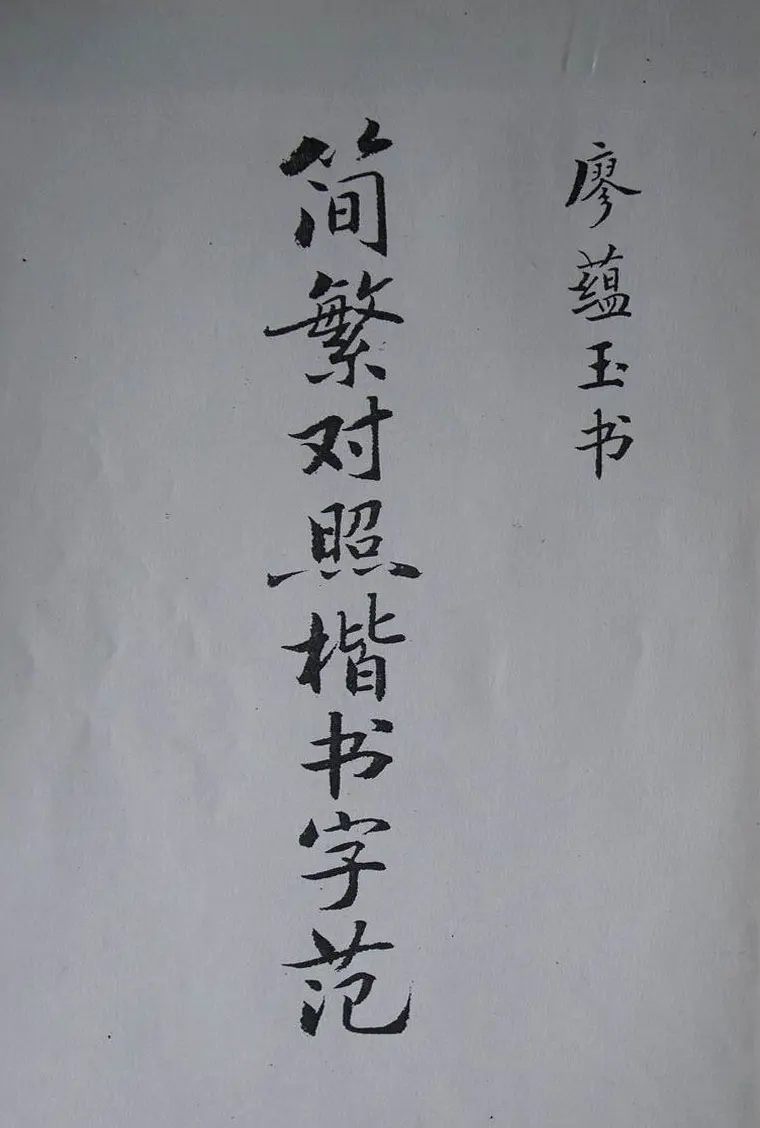 廖蕴玉书
简繁对照楷书字范